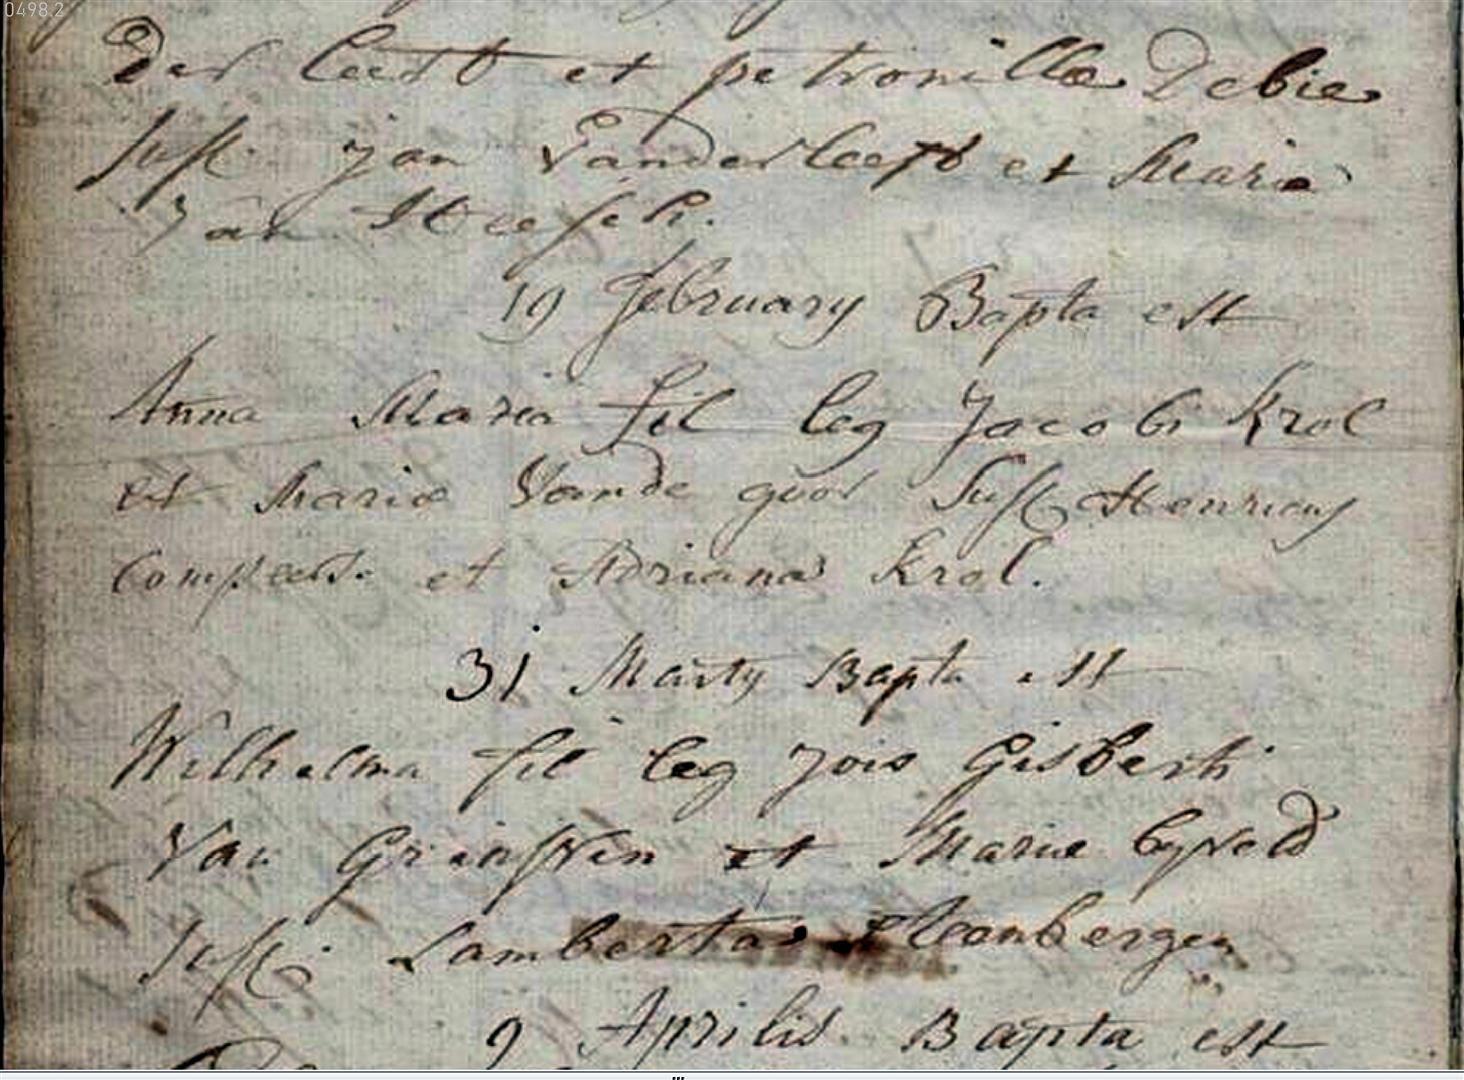 0498.2
Der leest et petronillæ Debie
Susc. jan Vanderleest et Maria
Van
19 february Bapta est
Anna Maria fil leg Jacobi Krol
et Mariæ Vande Susc Henricus
et Adriana Krol.
31 Marty Bapta est
Wilhelma fil leg Jois Gisberti
Van Grinsven et Mariæ byveld
Susc. Lamberta Steenbergen
9 Aprilis Bapta est